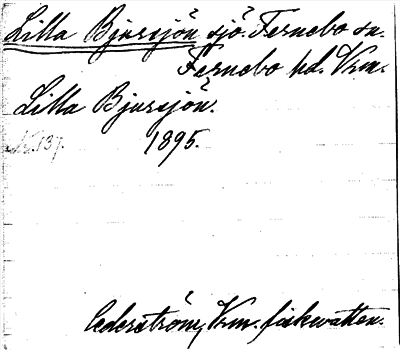 Lilla Bjursjön sjö. Fernebo sn.
Fernebo hd. Vrm.
Lilla Bjursjön.
N:137. 1895.
Cederström, Vrm. fiskvatten.